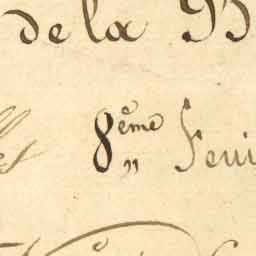 de la B
es 8ème Feui